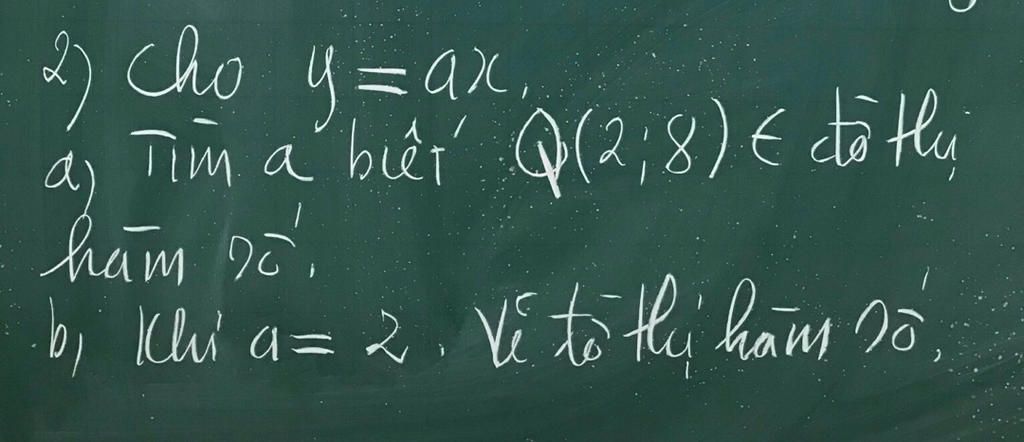 2) Cho y = ax.
a) Tìm a biết Q(2;8) ∈ đồ thị
hàm số.
b) Khi a = 2. Vẽ đồ thị hàm số.